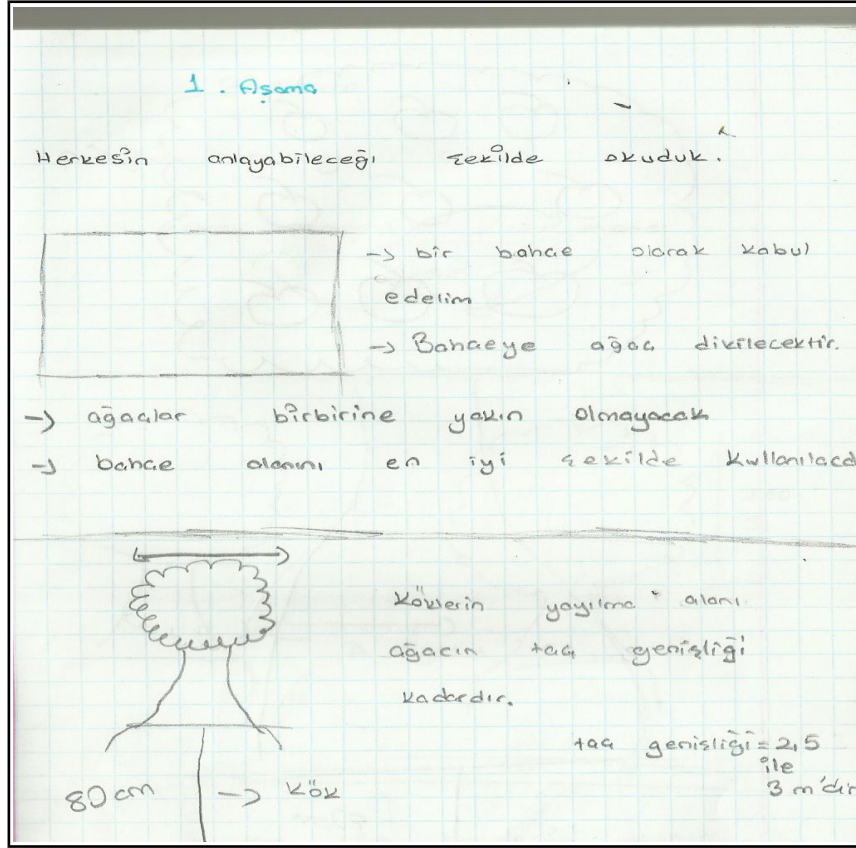 1. Aşama
Herkesin anlayabileceği şekilde okuduk.
→ bir bahçe olarak kabul
edelim
→ Bahçeye ağaç dikilecektir.
→ ağaçlar birbirine yakın olmayacak
→ bahçe alanını en iyi şekilde kullanılaca
Köklerin yayılma alanı
ağacın taç genişliği
kadardır.
taç genişliği = 2,5
ile
3 m'dir
80 cm → kök